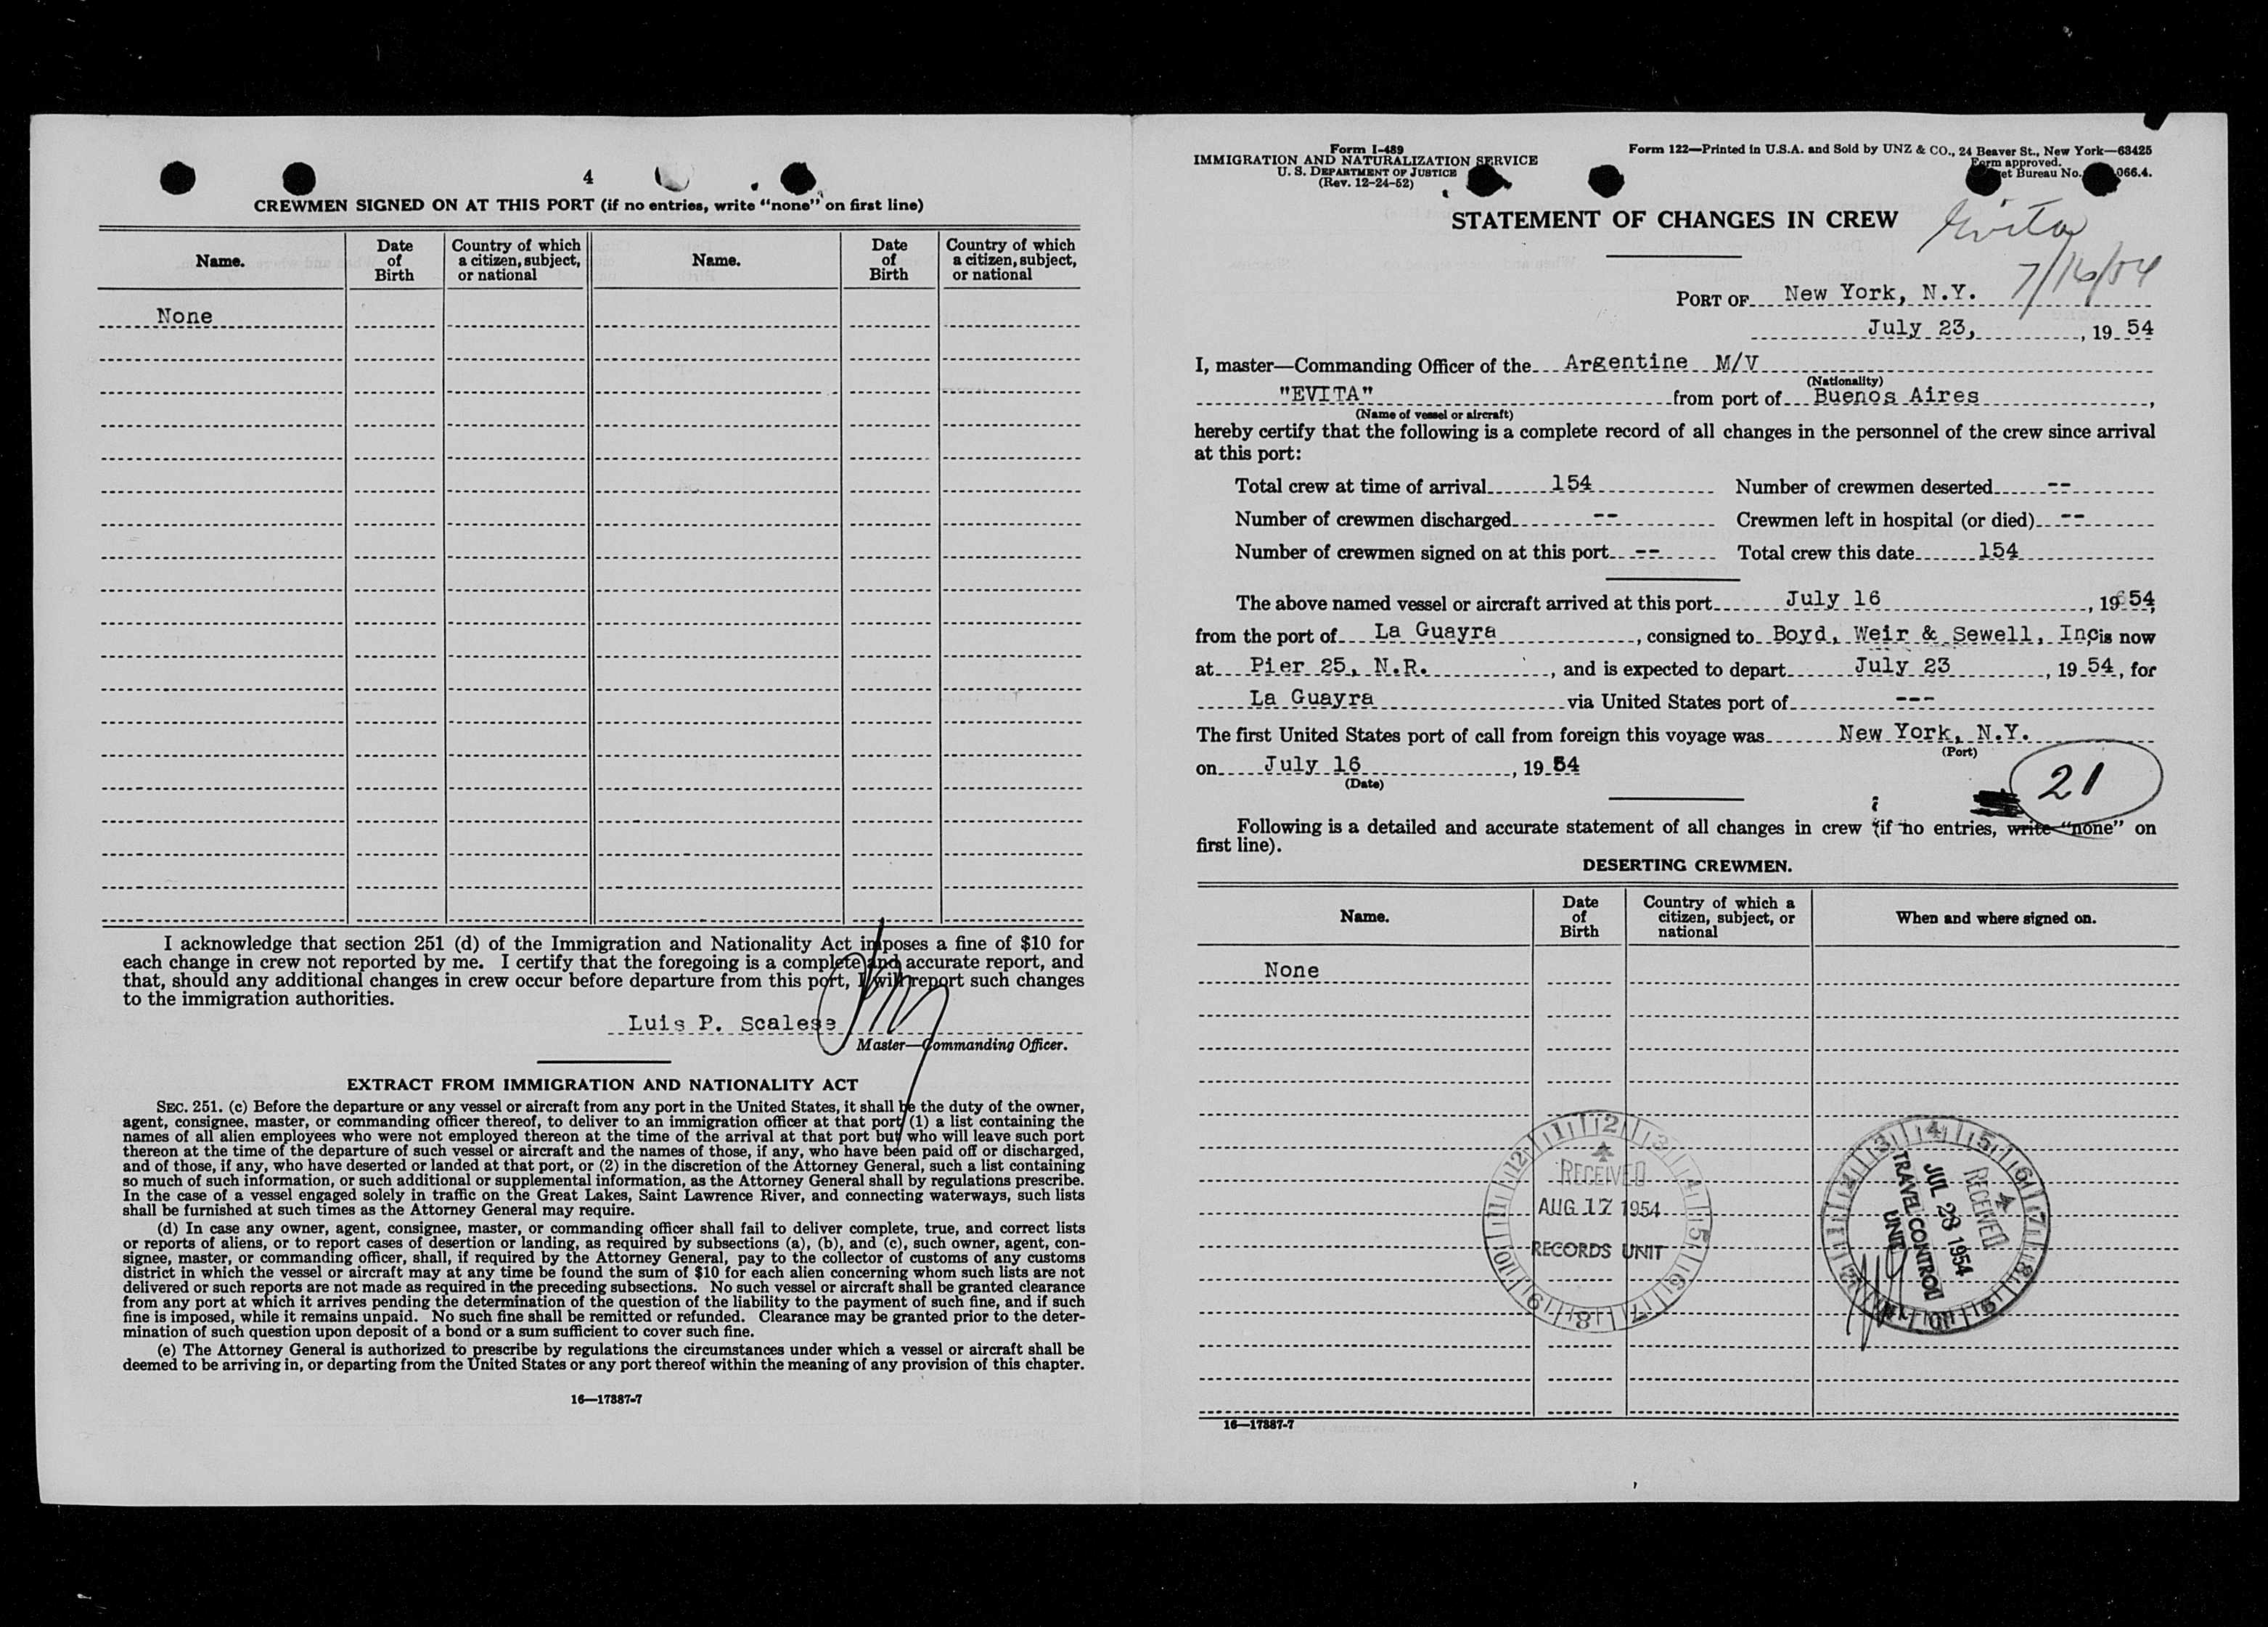 4
CREWMEN SIGNED ON AT THIS PORT (if no entries, write “none” on first line)
Name.
Date of Birth
Country of which a citizen, subject, or national
Name.
Date of Birth
Country of which a citizen, subject, or national
None
I acknowledge that section 251 (d) of the Immigration and Nationality Act imposes a fine of $10 for
each change in crew not reported by me. I certify that the foregoing is a complete and accurate report, and
that, should any additional changes in crew occur before departure from this port, I will report such changes
to the immigration authorities.
Luis P. Scalese
Master—Commanding Officer.
EXTRACT FROM IMMIGRATION AND NATIONALITY ACT
SEC. 251. (c) Before the departure or any vessel or aircraft from any port in the United States, it shall be the duty of the owner,
agent, consignee, master, or commanding officer thereof, to deliver to an immigration officer at that port (1) a list containing the
names of all alien employees who were not employed thereon at the time of the arrival at that port but who will leave such port
thereon at the time of the departure of such vessel or aircraft and the names of those, if any, who have been paid off or discharged,
and of those, if any, who have deserted or landed at that port, or (2) in the discretion of the Attorney General, such a list containing
so much of such information, or such additional or supplemental information, as the Attorney General shall by regulations prescribe.
In the case of a vessel engaged solely in traffic on the Great Lakes, Saint Lawrence River, and connecting waterways, such lists
shall be furnished at such times as the Attorney General may require.
(d) In case any owner, agent, consignee, master, or commanding officer shall fail to deliver complete, true, and correct lists
or reports of aliens, or to report cases of desertion or landing, as required by subsections (a), (b), and (c), such owner, agent, con-
signee, master, or commanding officer, shall, if required by the Attorney General, pay to the collector of customs of any customs
district in which the vessel or aircraft may at any time be found the sum of $10 for each alien concerning whom such lists are not
delivered or such reports are not made as required in the preceding subsections. No such vessel or aircraft shall be granted clearance
from any port at which it arrives pending the determination of the question of the liability to the payment of such fine, and if such
fine is imposed, while it remains unpaid. No such fine shall be remitted or refunded. Clearance may be granted prior to the deter-
mination of such question upon deposit of a bond or a sum sufficient to cover such fine.
(e) The Attorney General is authorized to prescribe by regulations the circumstances under which a vessel or aircraft shall be
deemed to be arriving in, or departing from the United States or any port thereof within the meaning of any provision of this chapter.
16—17887-7
Form I-489
IMMIGRATION AND NATURALIZATION SERVICE
U. S. DEPARTMENT OF JUSTICE
(Rev. 12-24-52)
Form 122—Printed in U.S.A. and Sold by UNZ & CO., 24 Beaver St., New York—63425
Form approved.
et Bureau No. 066.4.
STATEMENT OF CHANGES IN CREW
Evita
7/16/54
PORT OF New York, N.Y.
July 23, , 19 54
I, master—Commanding Officer of the Argentine M/V
(Nationality)
"EVITA" from port of Buenos Aires ,
(Name of vessel or aircraft)
hereby certify that the following is a complete record of all changes in the personnel of the crew since arrival
at this port:
Total crew at time of arrival 154 Number of crewmen deserted --
Number of crewmen discharged -- Crewmen left in hospital (or died) --
Number of crewmen signed on at this port -- Total crew this date 154
The above named vessel or aircraft arrived at this port July 16 , 19 54,
from the port of La Guayra , consigned to Boyd, Weir & Sewell, Inc is now
at Pier 25, N.R. , and is expected to depart July 23 , 19 54, for
La Guayra via United States port of ---
The first United States port of call from foreign this voyage was New York, N.Y.
(Port)
on July 16 , 19 54
(Date)
21
Following is a detailed and accurate statement of all changes in crew (if no entries, write “none” on
first line).
DESERTING CREWMEN.
Name.
Date of Birth
Country of which a citizen, subject, or national
When and where signed on.
None
RECEIVED
AUG 17 1954
RECORDS UNIT
1 2 3 4 5 6 7 8 9 10 11 12
RECEIVED
JUL 23 1954
TRAVEL CONTROL
UNIT
16—17887-7